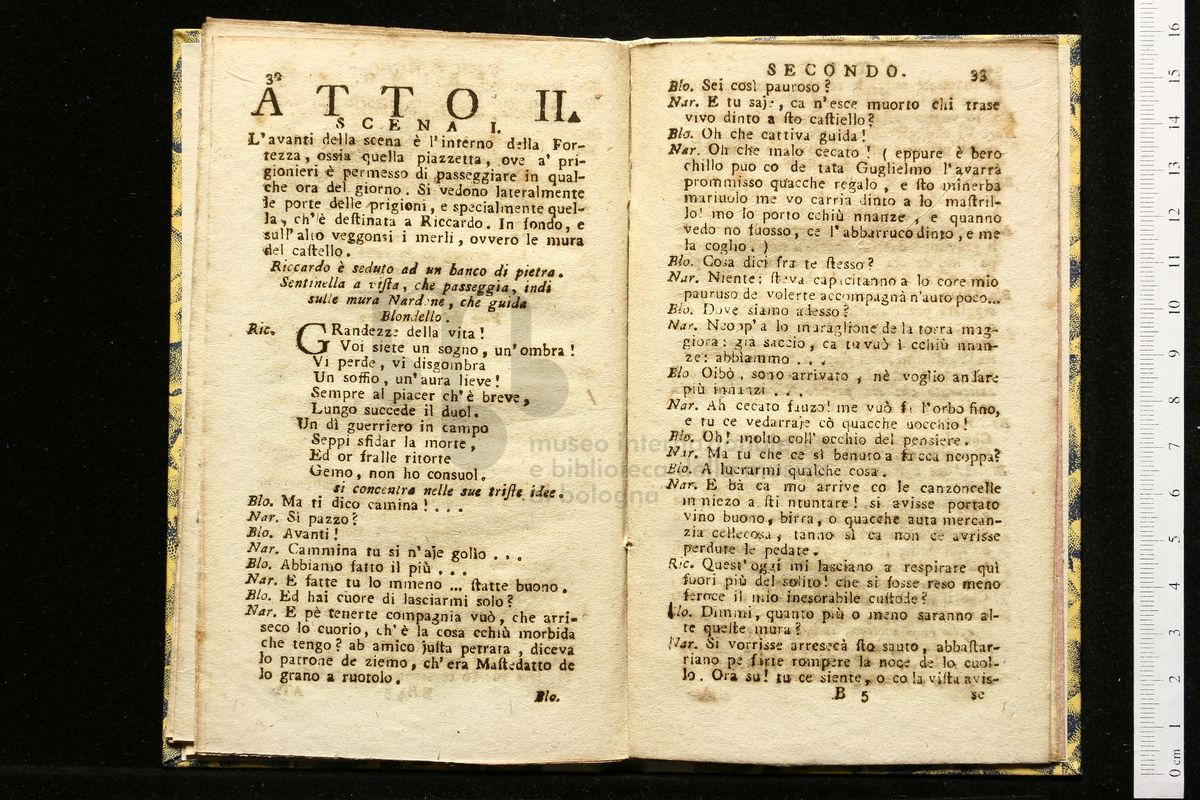 32
ATTO II.
SCENA I.
L'avanti della scena è l'interno della For-
tezza, ossia quella piazzetta, ove a' pri-
gionieri è permesso di passeggiare in qual-
che ora del giorno. Si vedono lateralmente
le porte delle prigioni, e specialmente quel-
la, ch'è destinata a Riccardo. In fondo, e
sull'alto veggonsi i merli, ovvero le mura
del castello.
Riccardo è seduto ad un banco di pietra.
Sentinella a vista, che passeggia, indi
sulle mura Nardone, che guida
Blondello.
Ric. GRandezze della vita!
Voi siete un sogno, un'ombra!
Vi perde, vi disgombra
Un soffio, un'aura lieve!
Sempre al piacer ch'è breve,
Lungo succede il duol.
Un dì guerriero in campo
Seppi sfidar la morte,
Ed or fralle ritorte
Gemo, non ho consuol.
si concentra nelle sue triste idee.
Blo. Ma ti dico camina! . . .
Nar. Si pazzo?
Blo. Avanti!
Nar. Cammina tu si n'aje golìo . . .
Blo. Abbiamo fatto il più . . .
Nar. E fatte tu lo mmeno ... statte buono.
Blo. Ed hai cuore di lasciarmi solo?
Nar. E pè tenerte compagnia vuò, che arri-
seco lo cuorio, ch'è la cosa cchiù morbida
che tengo? ab amico justa petrata, diceva
lo patrone de ziemo, ch'era Mastedatto de
lo grano a ruotolo.
Blo.
SECONDO. 33
Blo. Sei così pauroso?
Nar. E tu saje, ca n'esce muorto chi trase
vivo dinto a sto castiello?
Blo. Oh che cattiva guida!
Nar. Oh che malo cecato! ( eppure è bero
chillo può co de tata Guglielmo l'avarrà
prommisso quacche regalo, e sto minerba
mariuolo me vo carrià dinto a lo mastril-
lo! mo lo porto cchiù nnanze, e quanno
vedo no fuosso, ce l'abbarruco dinto, e me
la coglio. )
Blo. Cosa dici fra te stesso?
Nar. Niente: steva capacitanno a lo core mio
pauruso de volerte accompagnà n'auto poco...
Blo. Dove siamo adesso?
Nar. Ncopp'a lo muraglione de la torra mag-
giora: già saccio, ca tu vuò i cchiù nnan-
ze: abbiammo . . .
Blo Oibò, sono arrivato, nè voglio andare
più innanzi . . .
Nar. Ah cecato fauzo! me vuò fa l'orbo fino,
e tu ce vedarraje cò quacche uocchio!
Blo. Oh! molto coll'occhio del pensiere.
Nar. Ma tu che ce sì benuto a fa ccà ncoppa?
Blo. A lucrarmi qualche cosa.
Nar. E bà ca mo arrive co le canzoncelle
mmiezo a sti ntuntare! si avisse portato
vino buono, birra, o quacche auta mercan-
zia cellecosa, tanno sì ca non ce avrisse
perdute le pedate.
Ric. Quest'oggi mi lasciano a respirare quì
fuori più del solito! che si fosse reso meno
feroce il mio inesorabile custode?
Blo. Dimmi, quanto più o meno saranno al-
te queste mura?
Nar. Si vorrisse arresecà sto sauto, abbastar-
riano pe farte rompere la noce de lo cuol-
lo. Ora su! tu ce siente, o co la vista avis-
B 5 se
museo internazionale
e biblioteca
bologna
16
15
14
13
12
11
10
9
8
7
6
5
4
3
2
1
0 cm